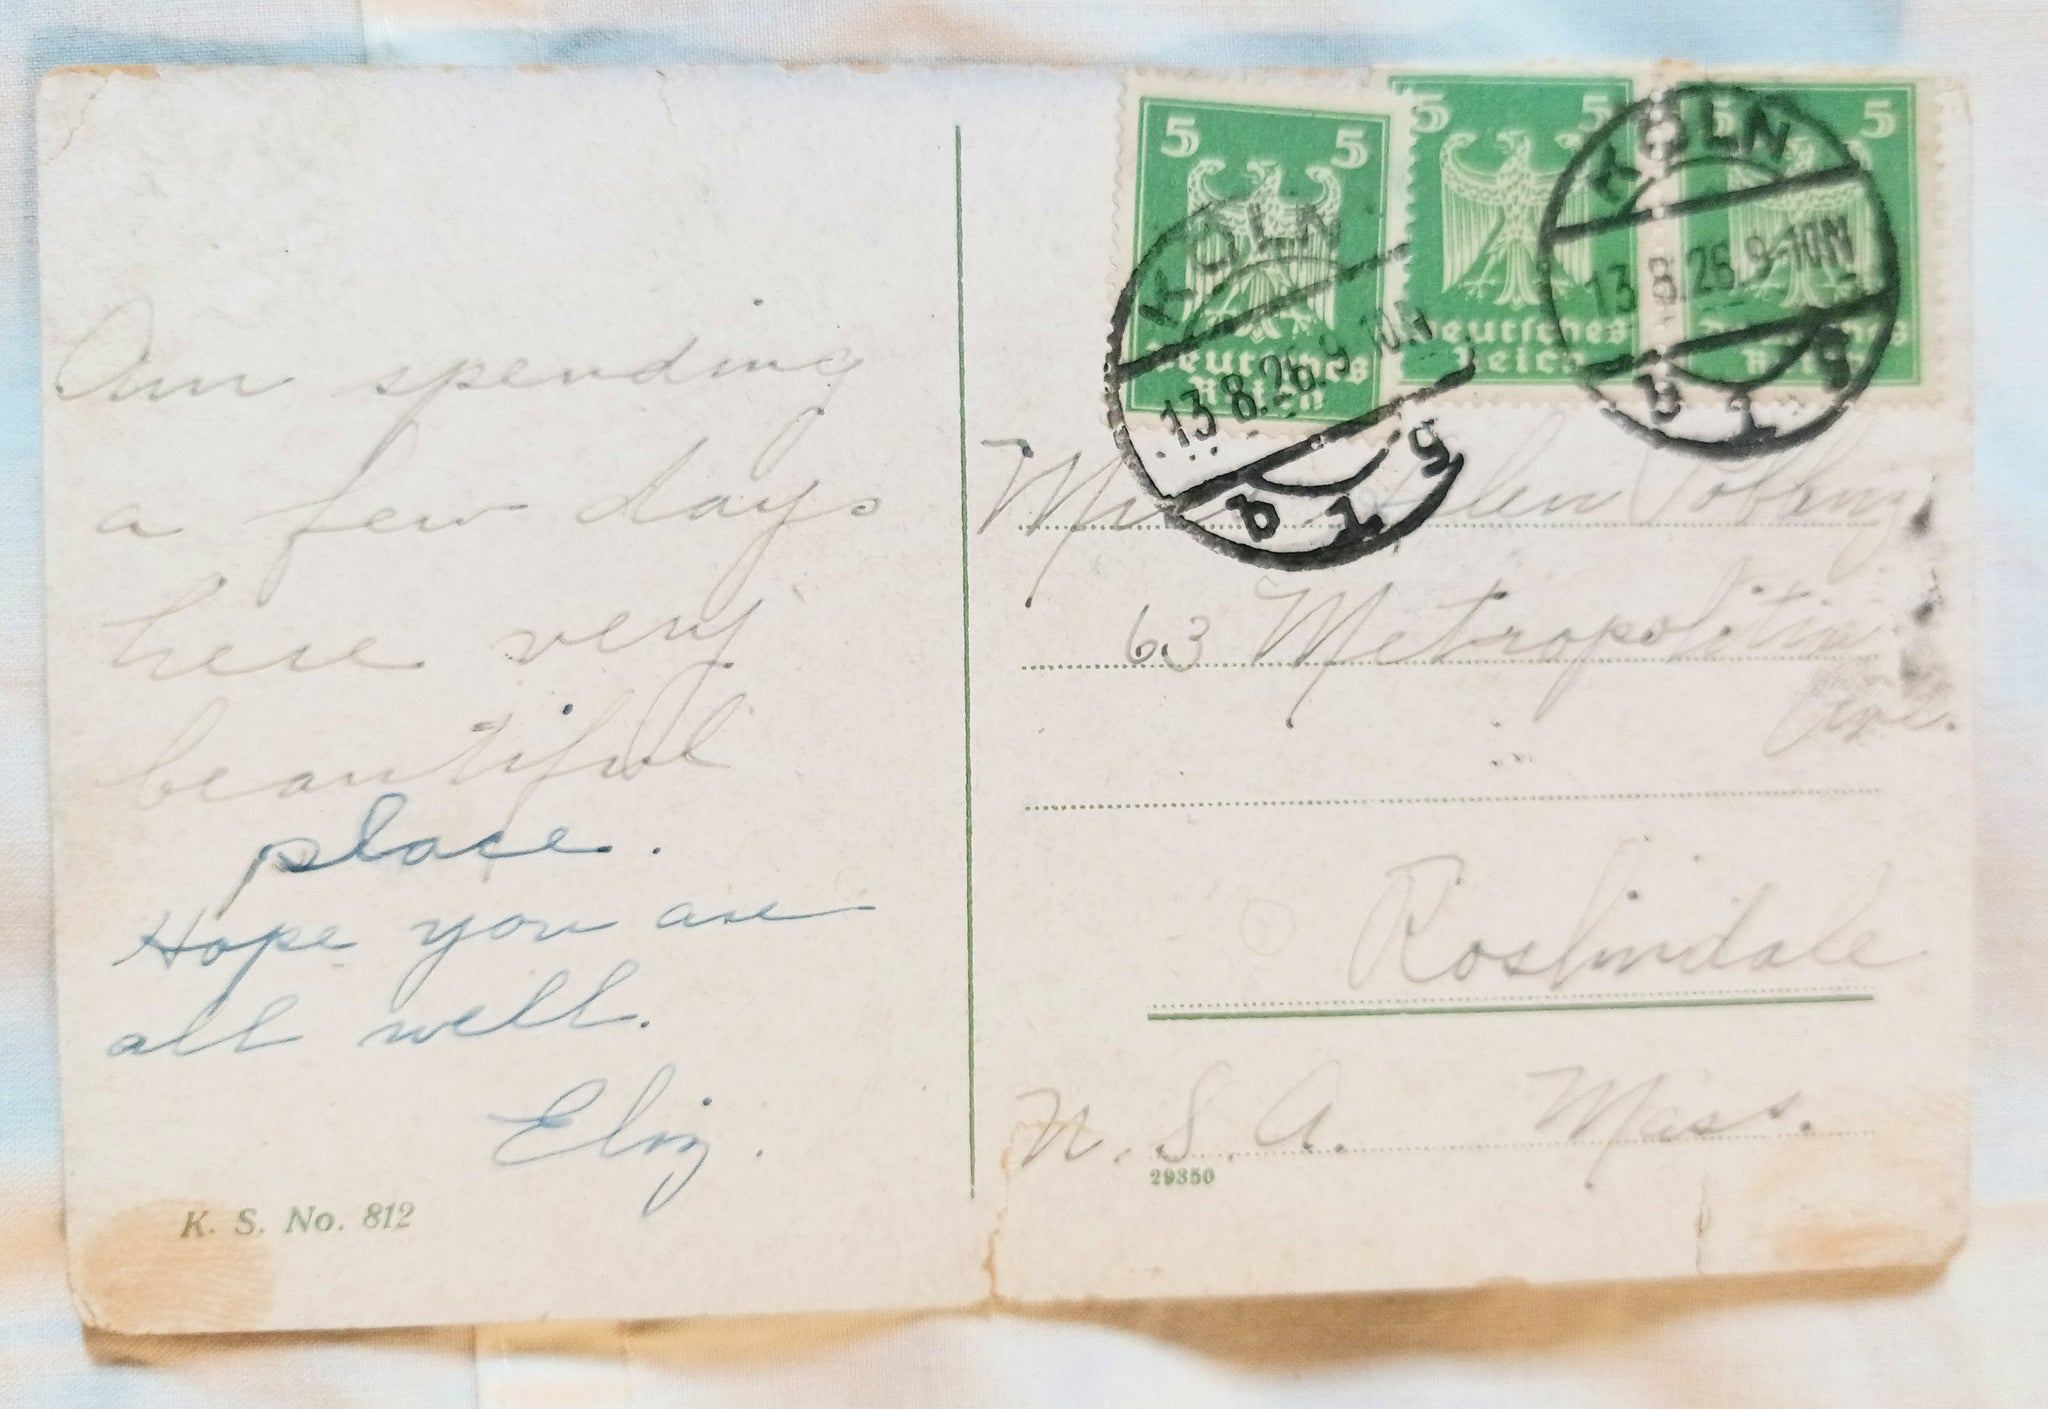 Am spending
a few days
here very
beautiful
place.
Hope you are
all well.
Eliz.
K. S. No. 812
5 5
Deutsches
Reich
5 5
Deutsches
Reich
5 5
Deutsches
Reich
KÖLN
13.8.26.9-10N
b 1 g
KÖLN
13.8.26.9-10N
b 1 g
Miss Helen
63 Metropolitan
Ave.
Roslindale
U.S.A. Mass.
29350